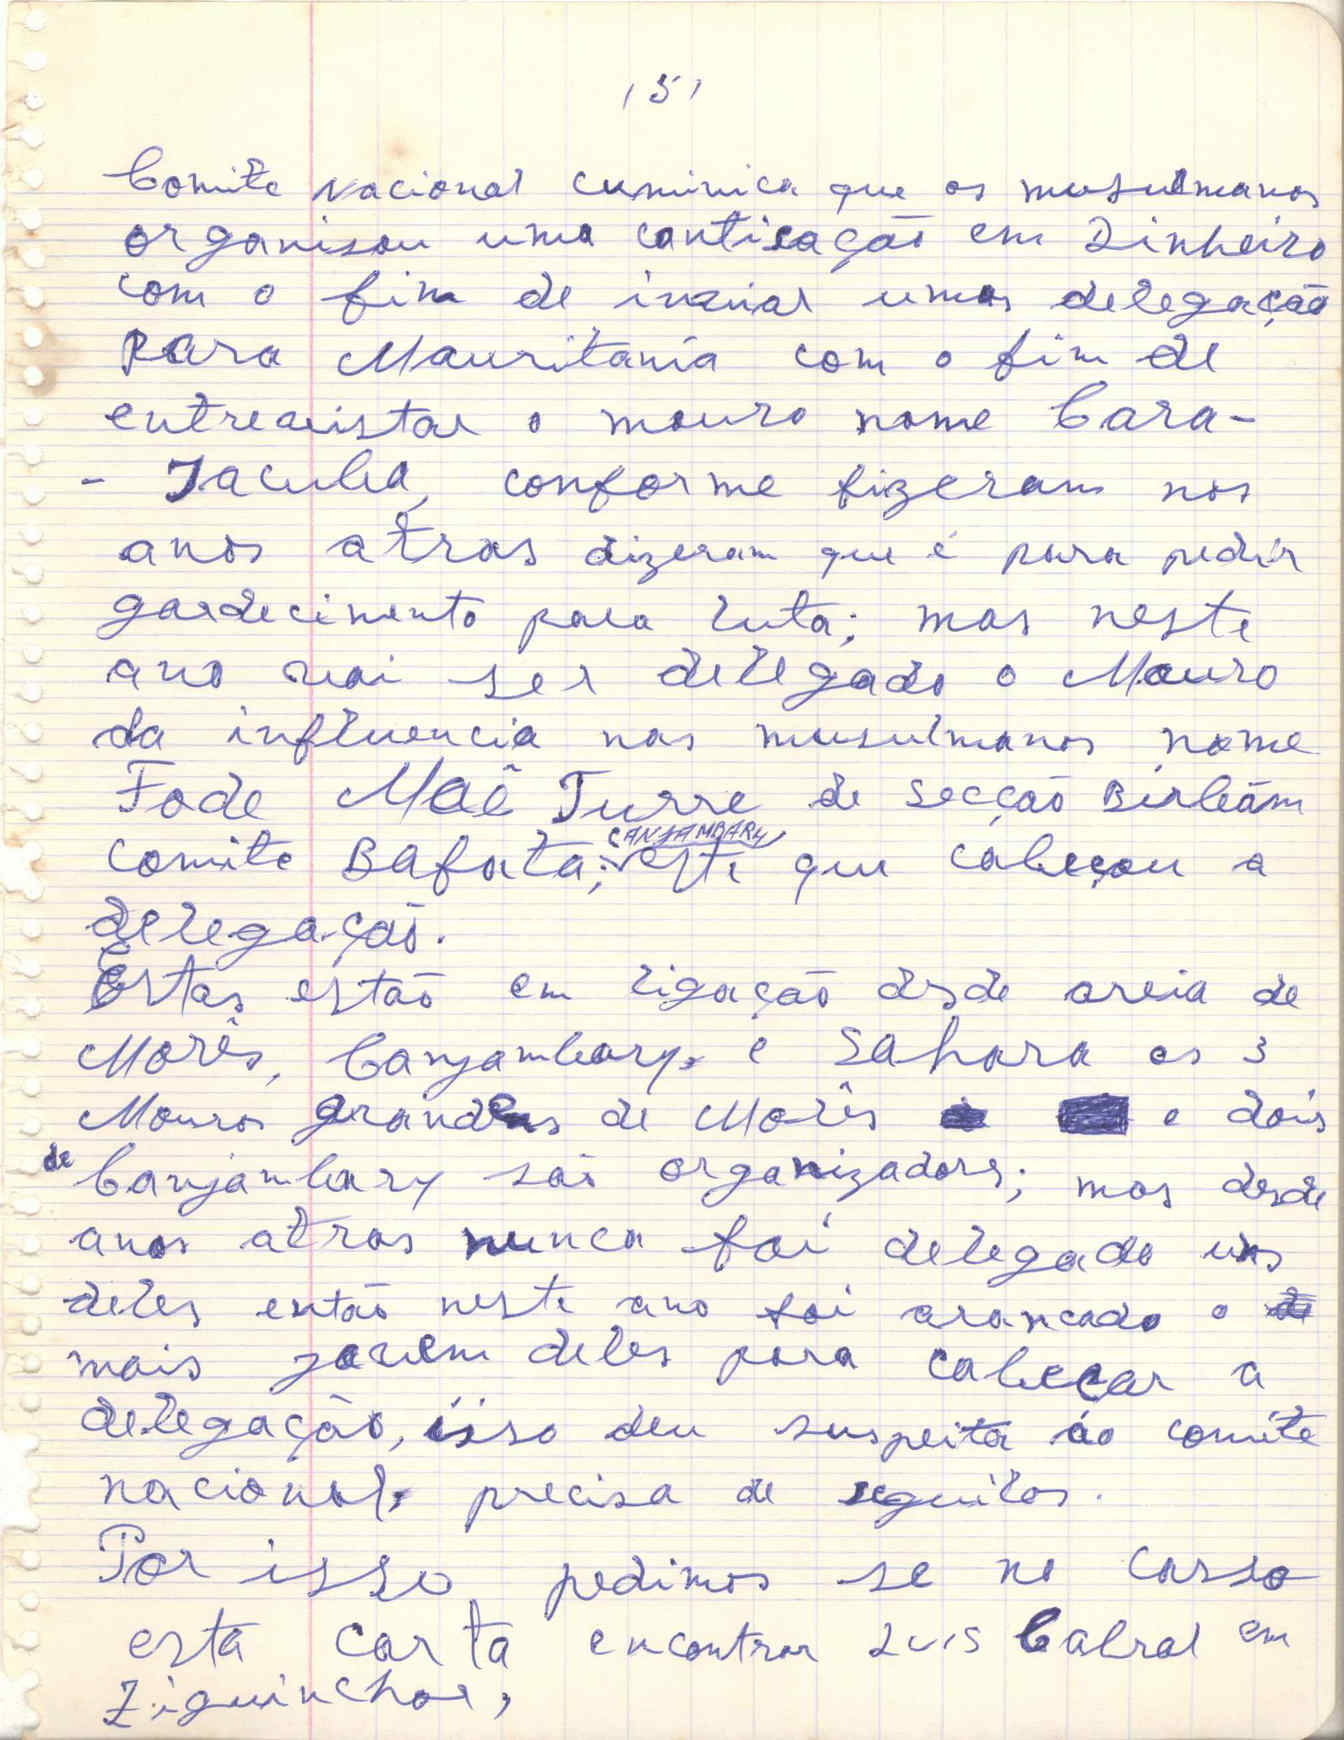 /5/
Comite Nacional cuminica que os musulmanos
organisou uma cantisação em Dinheiro
com o fim de inviar umas delegação
para Mauritania com o fim de
entrevistar o mouro nome Cara-
- Jaculá, conforme fizeram nos
anos atras dizeram que é para pedir
gardecimento para luta; mas neste
ano vai ser delegado o Mouro
da influencia nas musulmanos nome
Fode Maê Turre de Secção Birleám
CANJAMBARY
comite Bafata; este que cabeçou a
delegação.
Estas estão em ligação desde areia de
Morês, Canjambary, e Sahara os 3
Mouros grandes de Morês e dois
de Canjambary são organizadores; mas desde
anos atras nunca foi delegado uns
deles então neste ano foi arancado o
mais jovem deles para cabeçar a
delegação, isso deu suspeita ao comite
nacional, precisa de seguilos.
Por isso pedimos se no casso
esta carta encontrar Luis Cabral em
Ziguinchor,